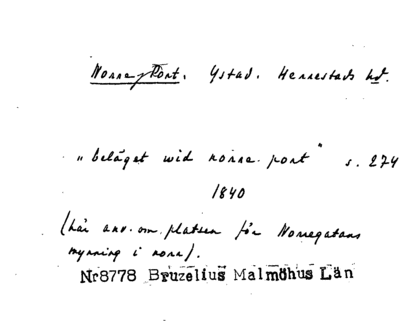 Norre Port. Ystad. Herrestads hd.
"beläget wid norre port" s. 274
1840
(här anv. om platsen för Norregatans
mynning i norr).
Nr8778 Bruzelius Malmöhus Län